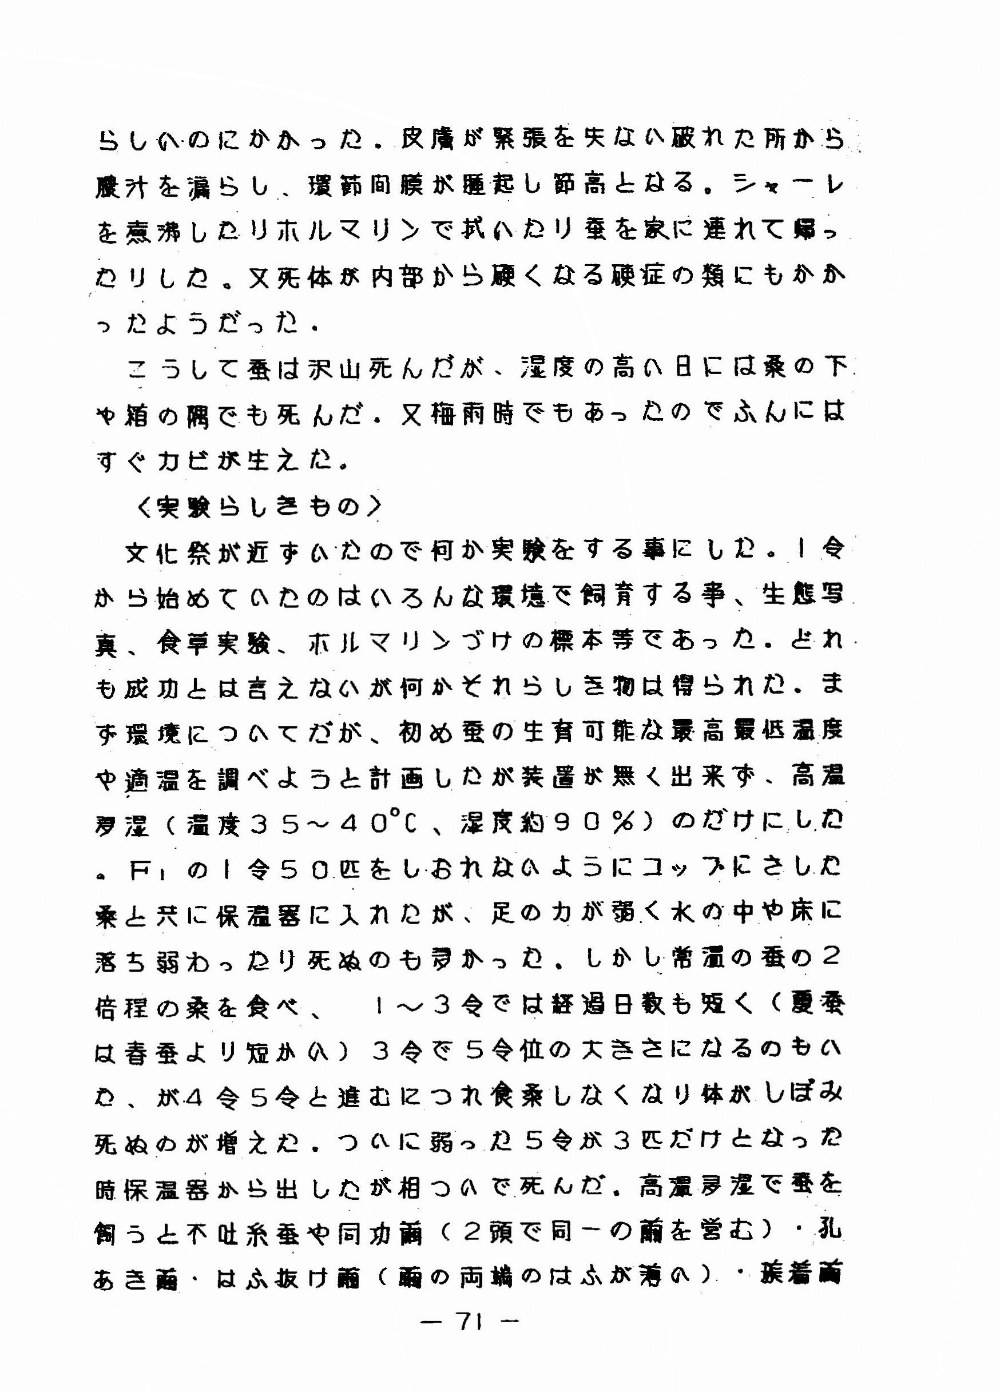 らしいのにかかった．皮膚が緊張を失ない破れた所から
膿汁を漏らし、環節間膜が腫起し節高となる。シャーレ
を煮沸したりホルマリンで拭いたり蚕を家に連れて帰っ
たりした。又死体が内部から硬くなる硬症の類にもかか
ったようだった．
　こうして蚕は沢山死んだが、湿度の高い日には桑の下
や箱の隅でも死んだ．又梅雨時でもあったのでふんには
すぐカビが生えた。
〈実験らしきもの〉
　文化祭が近ずいたので何か実験をする事にした。１令
から始めていたのはいろんな環境で飼育する事、生態写
真、食草実験、ホルマリンづけの標本等であった．どれ
も成功とは言えないが何かそれらしき物は得られた．ま
ず環境についてだが、初め蚕の生育可能な最高最低温度
や適温を調べようと計画したが装置が無く出来ず、高温
多湿（温度３５～４０℃、湿度約９０％）のだけにした
。F₁の１令５０匹をしおれないようにコップにさした
桑と共に保温器に入れたが、足の力が弱く水の中や床に
落ち弱わったり死ぬのも多かった．しかし常温の蚕の２
倍程の桑を食べ、　１～３令では経過日数も短く（夏蚕
は春蚕より短かい）３令で５令位の大きさになるのもい
た、が４令５令と進むにつれ食桑しなくなり体がしぼみ
死ぬのが増えた．ついに弱った５令が３匹だけとなった
時保温器から出したが相ついで死んだ．高温多湿で蚕を
飼うと不吐糸蚕や同功繭（２頭で同一の繭を営む）・孔
あき繭・はふ抜け繭（繭の両端のはふが薄い）・簇着繭
― 71 ―